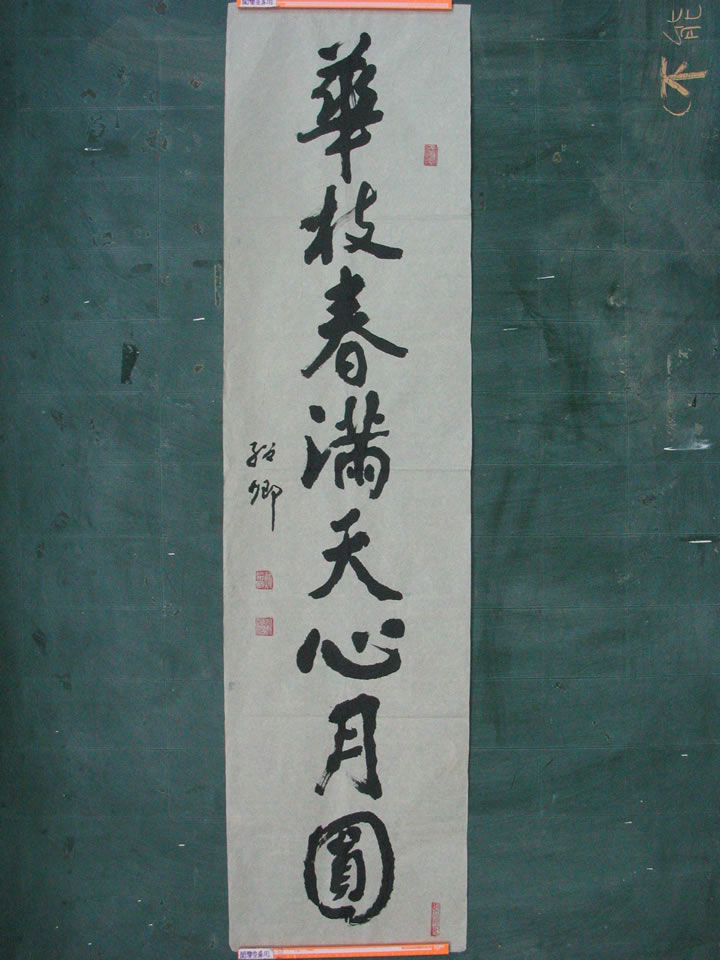 華枝春滿天心月圓